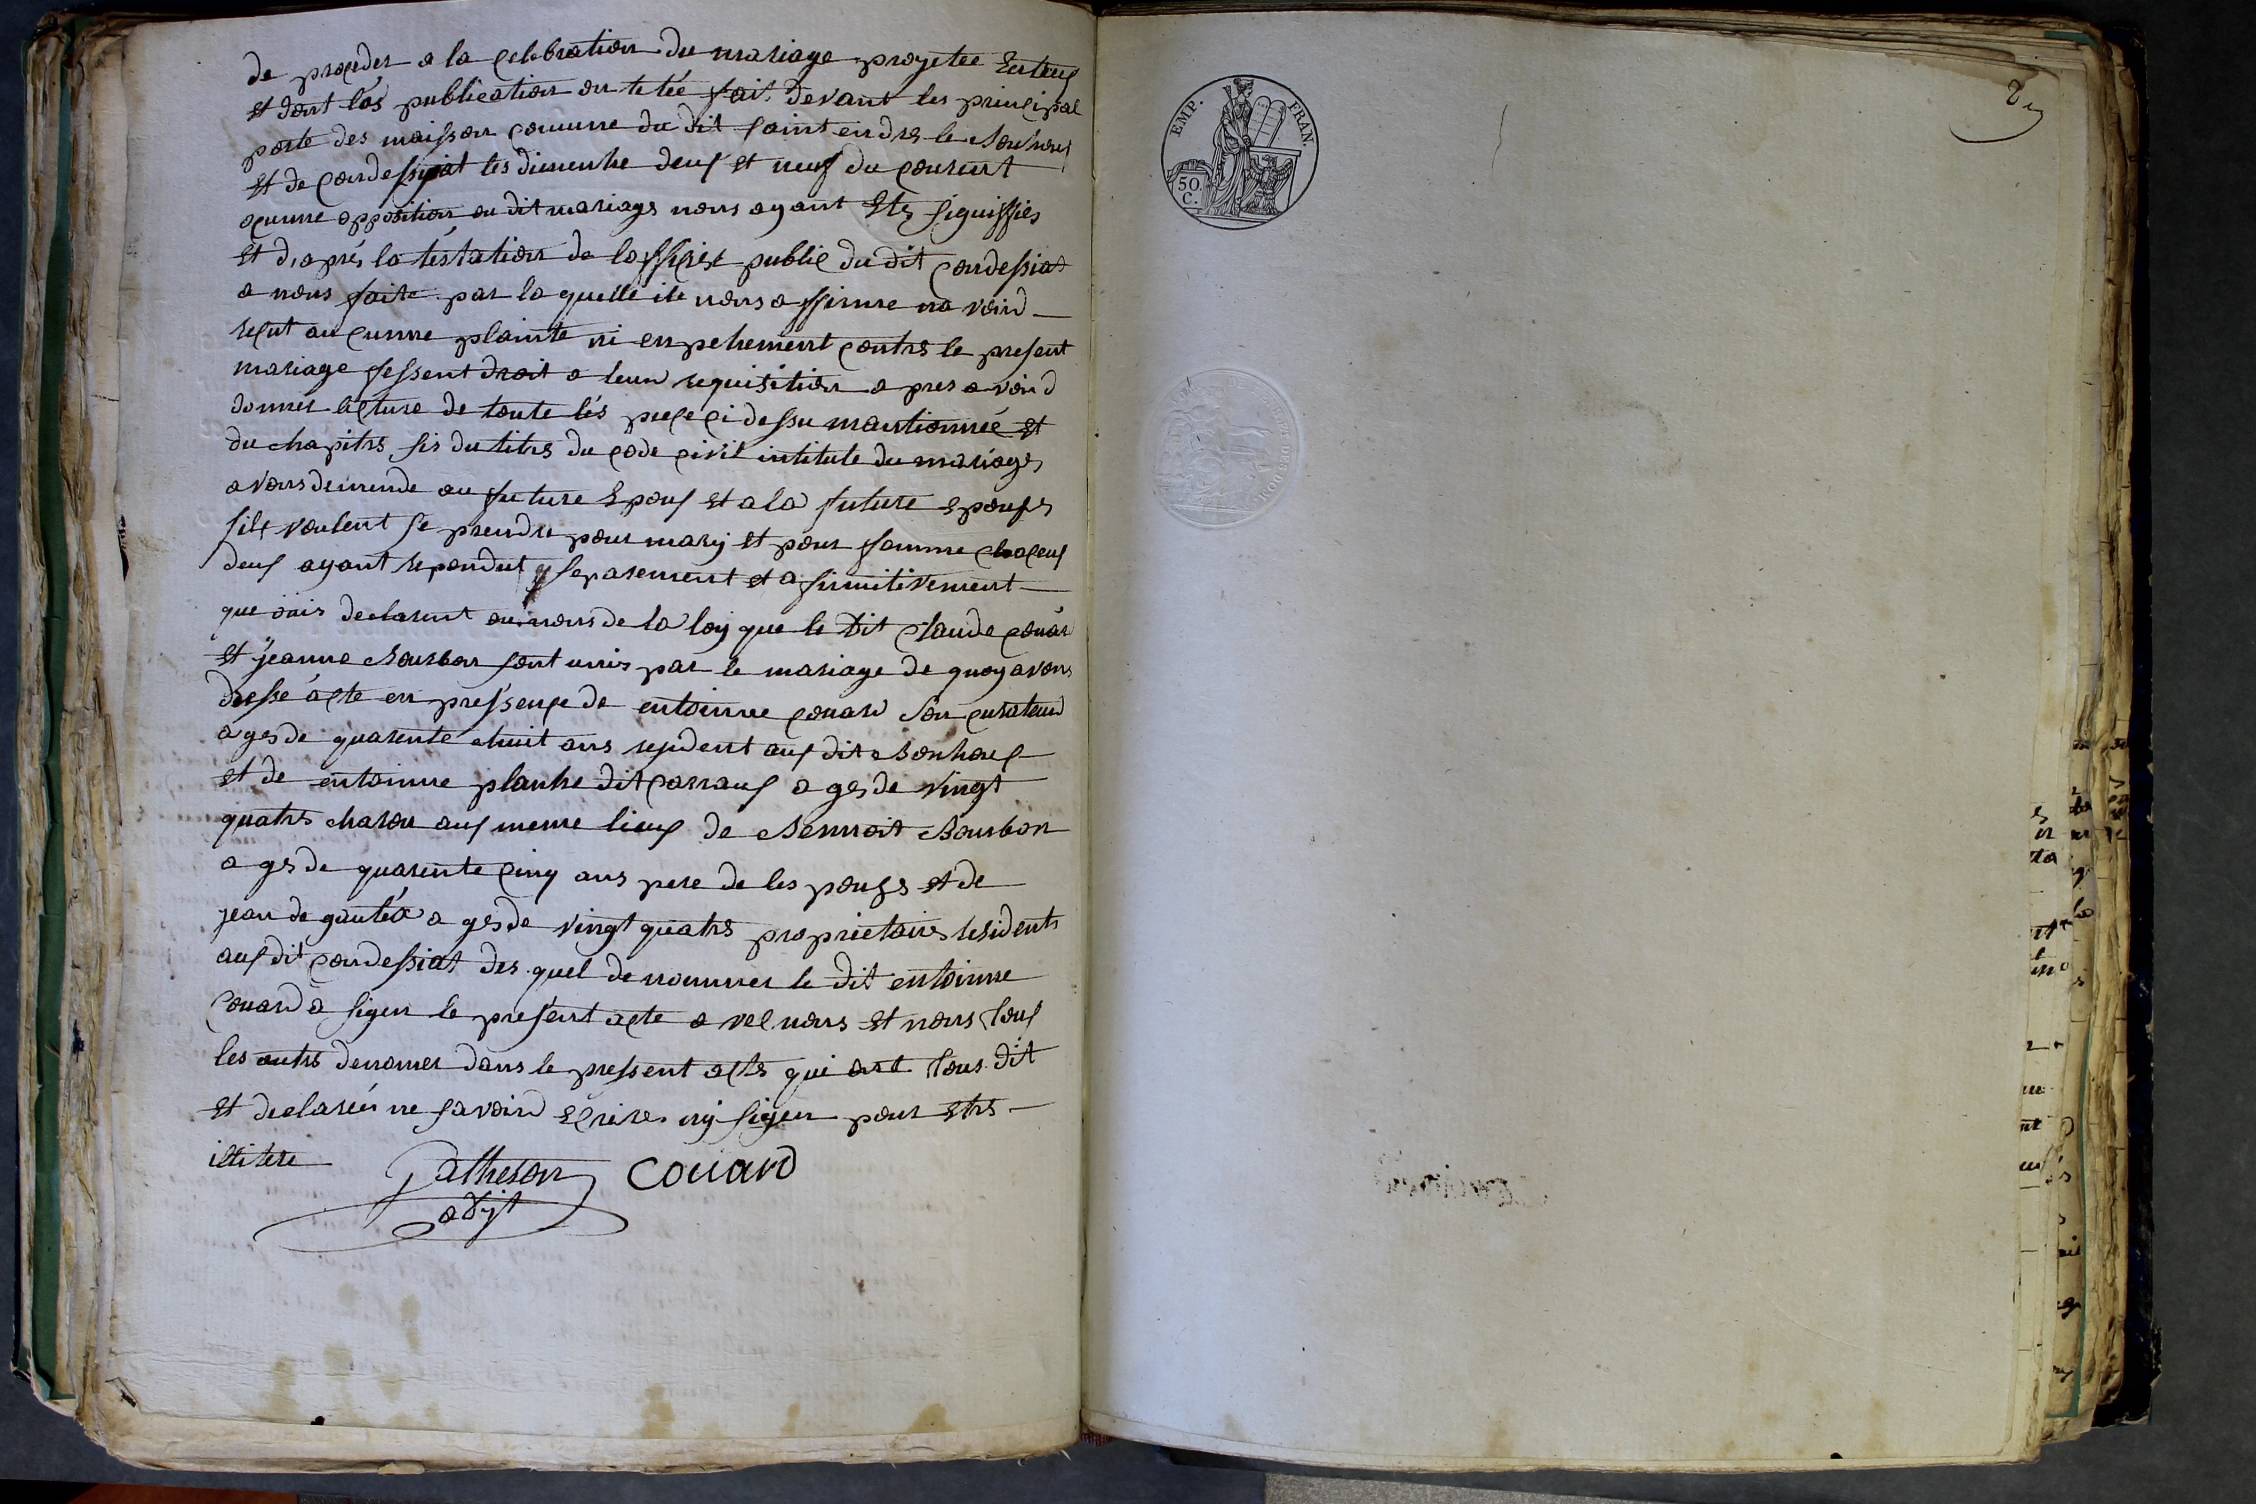 de proçeder a la çelebration du mariage proyetee Enteux
et dont lés publication on tetée fait devant les prinçipal
porte des maisson commune du dit saint endres le bouhoux
et de condessiat les dimenhe deux et neuf du courent
ocunne opposition ou dit mariages nous ayant Etes signiffiés
et d,aprés la téstation de loffiçiex publiç du dit condessiat
a nous faite par la quelle ile nous affirme na voird
reçut au çunne plainte ni enpehement contre le present
mariage fessent droit a leur requisition a pres a voird
donner leçture de toute lés pieçe çi dessu mantionnée et
du chapitre sis du titre du code çivil intitule du mariages
avons demende au future Epoux et a la future epouses
silx voulent se prendre pour mary et pour famme chaçeux
deux ayant repondut separement et afirmitivement
que oüis declarent au nons de la loy que le dit claude couar
et jeanne bourbon sont unis par le mariage de quoy avons
dresse açte en pressençe de entoinne couard son curateur
a ges de quarente huit ans resident aux dit bonhoux
et de entoinne planhe dit carraux a ges de vingt
quatre charon aux meme lieux de bennoit bourbon
a ges de quarente çinq ans pere de les pouses et de
jean de gautéx a ges de vingt quatre proprietaires residents
aux dit condessiat des quel de nommer le dit entoinne
couard à signer le présent açte a vec nous et nons tous
les autre denomer dans le pressent açte qui ont tous dit
et declarées ne savoird eçrires ny signer pour etre
illitere
Patheson Couard
adjt
EMP. FRAN.
50.
C.